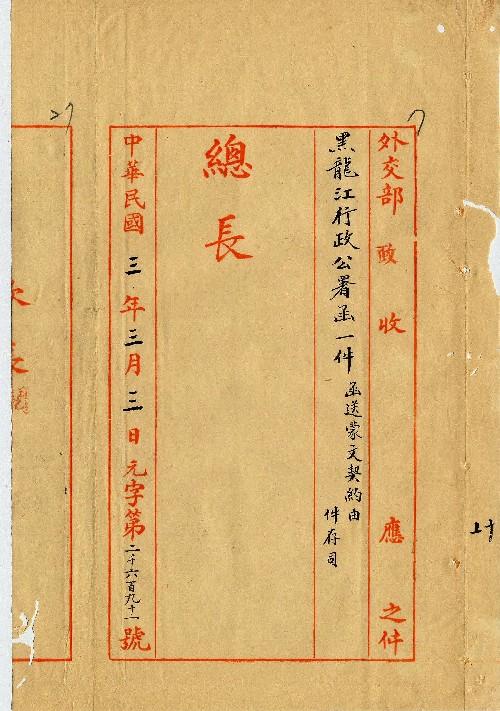 外交部 政 收 應 之件
黑龍江行政公署函一件 函送蒙文契約由
件存司
總長
中華民國 三 年 三 月 三 日 元字第二千六百九十一號
次長